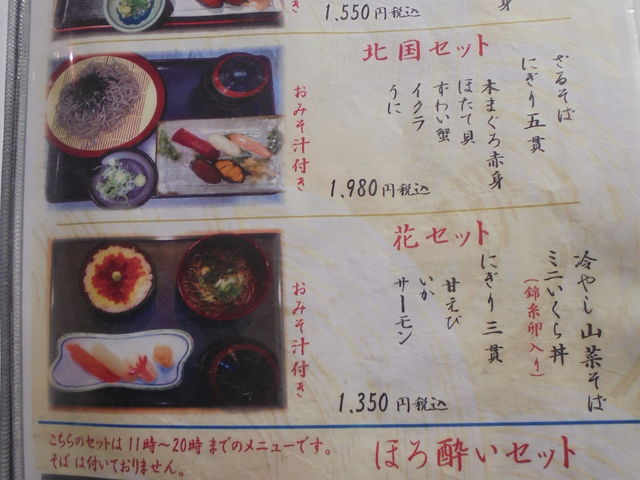 身
き
1.550円税込
北国セット
ざるそば
にぎり五貫
本まぐろ赤身
ほたて貝
ずわい蟹
イクラ
うに
おみそ汁付き
1.980円税込
花セット
冷やし山菜そば
ミニいくら丼
(錦糸卵入り)
にぎり三貫
甘えび
いか
サーモン
おみそ汁付き
1.350円税込
こちらのセットは11時～20時までのメニューです。
そばは付いておりません。
ほろ酔いセット